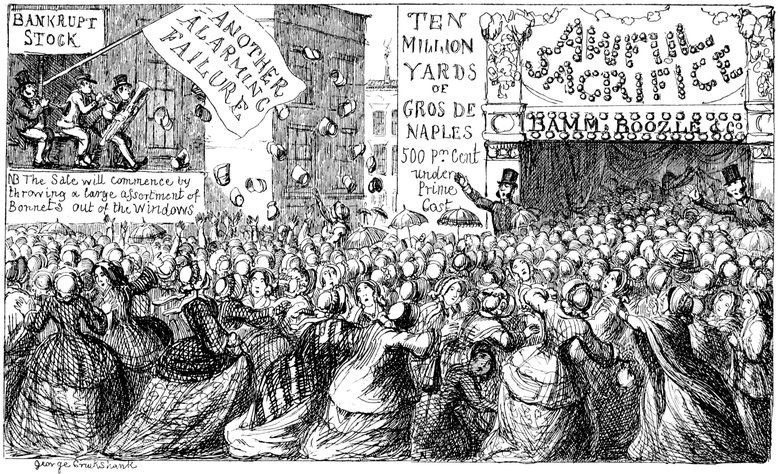 BANKRUPT
STOCK
ANOTHER
ALARMING
FAILURE
NB The Sale will commence by
throwing a large assortment of
Bonnets out of the Windows
TEN
MILLION
YARDS
OF
GROS DE
NAPLES
500 Pr Cent
under
Prime
Cost
AWFUL
SACRIFICE
BAMM, BOOZLE & Co
George Cruikshank